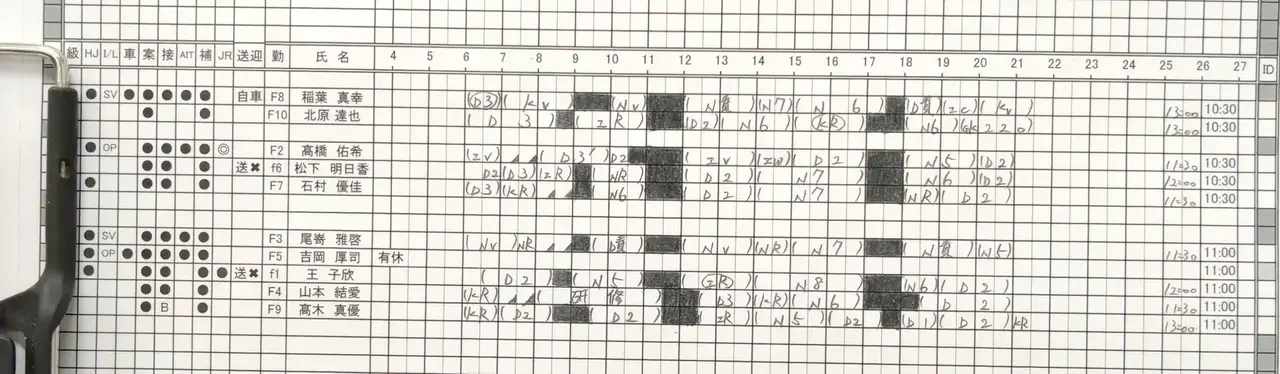 級 HJ I/L 車 案 接 AIT 補 JR 送迎 勤 氏 名 4 5 6 7 8 9 10 11 12 13 14 15 16 17 18 19 20 21 22 23 24 25 26 27 ID
● SV ● ● ● ● ● 自車 F8 稲葉 真幸 (D3)( Kv ) (Nv) ( N責 )(N7)( N 6 ) (D責)(Ic)( Kv ) 13=00 10:30
● ● F10 北原 達也 ( D 3 ) ( IR ) (D2)( N6 )( KR ) ( N6 ) 13=00 10:30
● OP ● ● ● ● ◎ F2 髙橋 佑希 (Iv) ( D3 ) D2 ( Iv )(Iw)( D2 ) ( N5 )(D2) 11=30 10:30
● ● ● 送✖ f6 松下 明日香 D2(D3)(IR) ( NR ) ( D2 )( N7 ) ( N6 )(D2) 12=00 10:30
● ● ● ● F7 石村 優佳 (D3)(KR) ( N6 ) ( D2 )( N7 ) (NR)( D2 ) 11=30 10:30
● SV ● ● ● ● F3 尾嵜 雅啓 ( Nv )NR ( D責 ) ( Nv )(NR)( N7 ) ( N責 )(N5) 11=30 11:00
● OP ● ● ● ● ● F5 吉岡 厚司 有休 11:00
● ● ● ● ● 送✖ f1 王 子欣 ( D2 ) ( N5 ) ( IR )( N8 ) (N6)( D2 ) 12=00 11:00
● ● ● F4 山本 結愛 (KR) ( 研 修 ) ( D3 )(KR)( N6 ) ( D 2 ) 11=30 11:00
● B ● F9 髙木 真優 (KR)(D2) ( D2 ) ( IR )( N5 )( D2 ) (D1)( D2 )KR 13=00 11:00